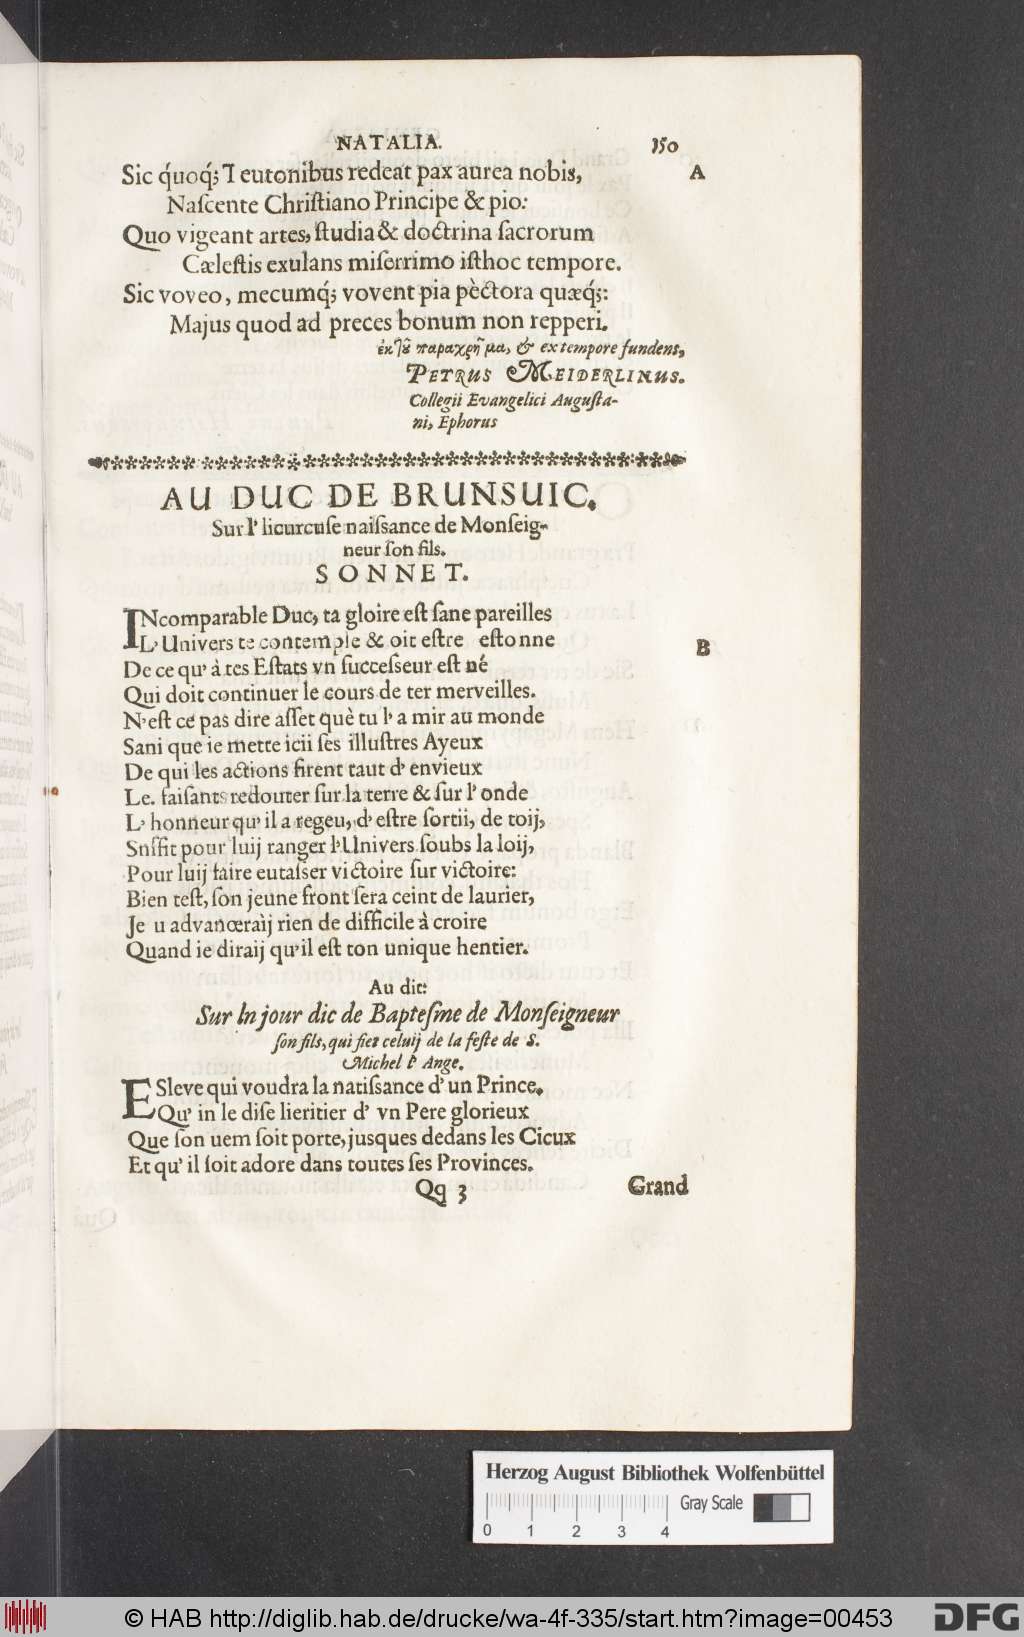 NATALIA. 150
Sic q́uoq́; Teutonibus redeat pax aurea nobis, A
Naſcente Chriſtiano Principe & pio:
Quo vigeant artes, ſtudia & doctrina ſacrorum
Cæleſtis exulans miſerrimo iſthoc tempore.
Sic voveo, mecumq́; vovent pia pèctora quæq́;:
Majus quod ad preces bonum non repperi.
ἐκ τȣ͂ παραχρῆμα, & ex tempore fundens,
PETRUS MEIDERLINUS.
Collegii Evangelici Auguſta-
ni, Ephorus
AU DUC DE BRUNSUIC.
Sur l' licurcuſe naiſsance de Monſeig-
neur ſon fils.
SONNET.
INcomparable Duc, ta gloire eſt ſane pareilles
L' Univers te contemple & oit eſtre eſtonne B
De ce qu' à tes Eſtats vn ſucceſseur eſt né
Qui doit continuer le cours de ter merveilles.
N'eſt ce pas dire aſſet què tu l' a mir au monde
Sani que ie mette icii ſes illuſtres Ayeux
De qui les actions firent taut d' envieux
Le. faiſants redouter ſur la terre & ſur l' onde
L' honneur qu' il a regeu, d' eſtre ſortii, de toij,
Snffit pour luij ranger l'Univers ſoubs la loij,
Pour luij faire eutaſser victoire ſur victoire:
Bien teſt, ſon jeune front ſera ceint de laurier,
Je u advancerаìj rien de difficile à croire
Quand ie diraij qu'il eſt ton unique hentier.
Au dit:
Sur ln jour dic de Bapteſme de Monſeigneur
ſon fils, qui fiet celuij de la feſte de S.
Michel l' Ange.
ESleve qui voudra la natiſsance d' un Prince.
Qu' in le diſe lieritier d' vn Pere glorieux
Que ſon uem ſoit porte, jusques dedans les Cicux
Et qu' il ſoit adore dans toutes ſes Provinces.
Qq 3 Grand
Herzog August Bibliothek Wolfenbüttel
Gray Scale
0 1 2 3 4
© HAB http://diglib.hab.de/drucke/wa-4f-335/start.htm?image=00453 DFG